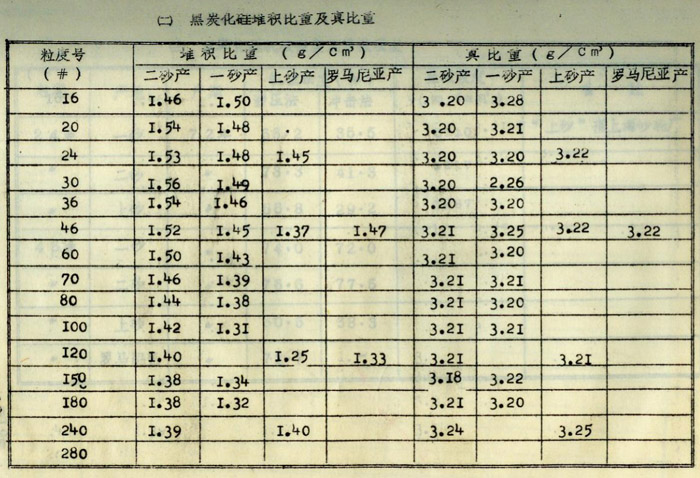 (二) 黑炭化硅堆积比重及真比重
粒度号 堆积比重 (g/Cm³) 真比重 (g/Cm³)
(#) 二砂产 一砂产 上砂产 罗马尼亚产 二砂产 一砂产 上砂产 罗马尼亚产
16 1.46 1.50 3.20 3.28
20 1.54 1.48 3.20 3.21
24 1.53 1.48 1.45 3.20 3.20 3.22
30 1.56 1.49 3.20 2.26
36 1.54 1.46 3.20 3.20
46 1.52 1.45 1.37 1.47 3.21 3.25 3.22 3.22
60 1.50 1.43 3.21 3.20
70 1.46 1.39 3.21 3.21
80 1.44 1.38 3.21 3.20
100 1.42 1.31 3.21 3.21
120 1.40 1.25 1.33 3.21 3.21
150 1.38 1.34 3.18 3.22
180 1.38 1.32 3.21 3.20
240 1.39 1.40 3.24 3.25
280